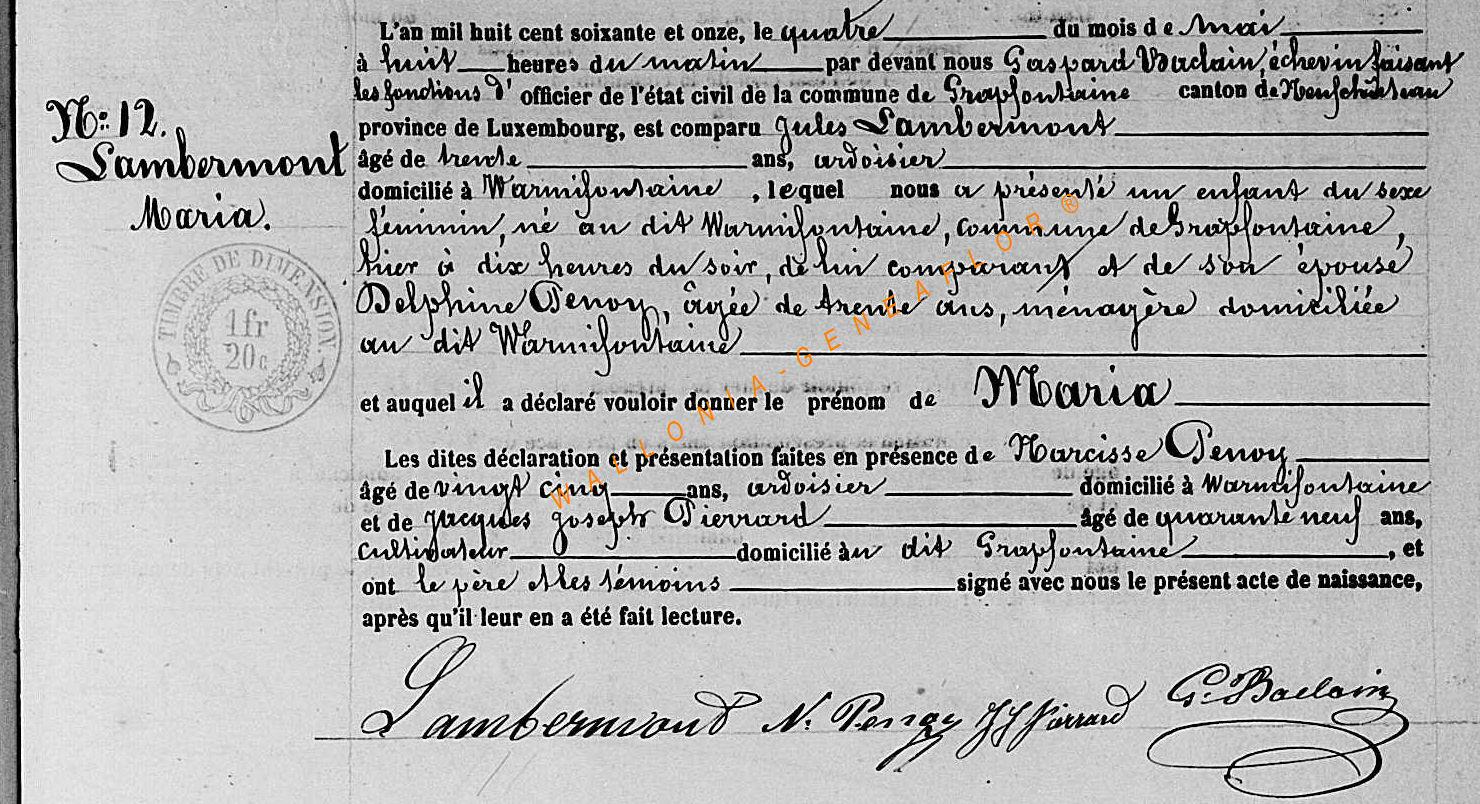 L'an mil huit cent soixante et onze, le quatre du mois de Mai
à huit heures du matin par devant nous Gaspard Baclain, échevin faisant
les fonctions d' officier de l'état civil de la commune de Grapfontaine canton de Neufchâteau
province de Luxembourg, est comparu Jules Lambermont
âgé de trente ans, ardoisier
domicilié à Warmifontaine , lequel nous a présenté un enfant du sexe
féminin, né au dit Warmifontaine, commune de Grapfontaine,
hier à dix heures du soir, de lui comparant et de son épouse
Delphine Penoy, âgée de trente ans, ménagère domiciliée
au dit Warmifontaine
et auquel il a déclaré vouloir donner le prénom de Maria
Les dites déclaration et présentation faites en présence de Narcisse Penoy
âgé de vingt cinq ans, ardoisier domicilié à Warmifontaine
et de Jacques Joseph Pierrard âgé de quarante neuf ans,
cultivateur domicilié au dit Grapfontaine , et
ont le père et les témoins signé avec nous le présent acte de naissance,
après qu'il leur en a été fait lecture.
Lambermont N. Penoy JJ Pierrard G. Baclain
No: 12.
Lambermont
Maria.
TIMBRE DE DIMENSION.
1 fr
20 c
WALLONIA-GENEAFLOR®